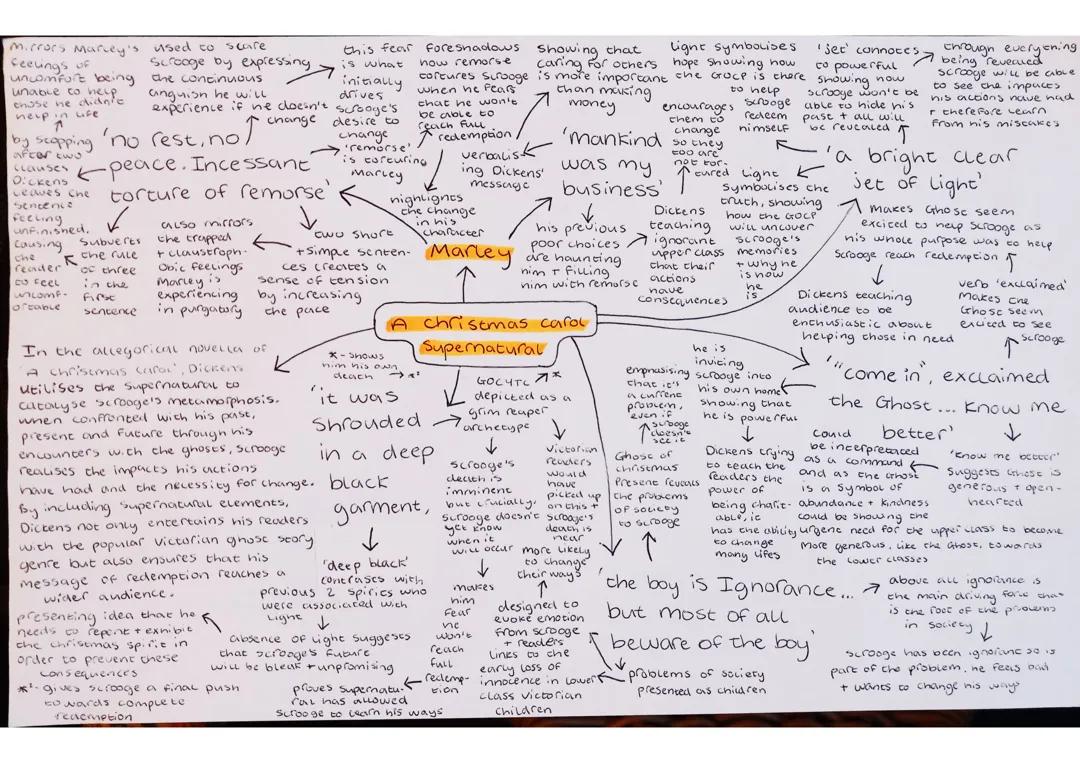 mirrors Marley's
feelings of
uncomfort being
unable to help
those he didn't
help in life
used to scare
Scrooge by expressing
the continuous
anguish he will
experience if he doesn't
change
this fear
is what
initially
drives
Scrooge's
desire to
change
'remorse'
is torturing
Marley
foreshadows
how remorse
tortures Scrooge
when he fears
that he won't
be able to
reach full
redemption
showing that
caring for others
is more important
than making
money
light symbolises
hope showing how
the GOCP is there
to help
Scrooge
redeem
himself
encourages
them to
change
so they
too are
not tor-
tured
'jet' connotes
to powerful
showing how
Scrooge won't be
able to hide his
past + all will
be revealed
through everything
being revealed
Scrooge will be able
to see the impacts
his actions have had
+ therefore learn
from his mistakes
by stopping
after two
clauses
Dickens
leaves the
sentence
feeling
unfinished,
causing
the
reader
to feel
uncomf-
ortable
'no rest, no
peace. Incessant
torture of remorse'
subverts
the rule
of three
in the
first
sentence
also mirrors
the trapped
+ claustroph-
obic feelings
Marley is
experiencing
in purgatory
two short
+ simple senten-
ces creates a
sense of tension
by increasing
the pace
highlights
the change
in his
character
verbalis-
ing Dickens'
message
'mankind
was my
business'
his previous
poor choices
are haunting
him + filling
him with remorse
Dickens
teaching
ignorant
upper class
that their
actions
have
consequences
Light
symbolises the
truth, showing
how the GOCP
will uncover
Scrooge's
memories
+ why he
is how
he
is
'a bright clear
jet of light'
makes Ghost seem
excited to help Scrooge as
his whole purpose was to help
Scrooge reach redemption
Dickens teaching
audience to be
enthusiastic about
helping those in need
verb 'exclaimed'
makes the
Ghost seem
excited to see
Scrooge
Marley
A christmas carol
Supernatural
In the allegorical novella of
'A christmas carol', Dickens
utilises the supernatural to
catalyse Scrooge's metamorphosis.
when confronted with his past,
present and future through his
encounters with the ghosts, Scrooge
realises the impacts his actions
have had and the necessity for change.
By including supernatural elements,
Dickens not only entertains his readers
with the popular Victorian ghost story
genre but also ensures that his
message of redemption reaches a
wider audience.
*- shows
him his own
death → *¹
'it was
shrouded
in a deep
black
garment,
GOCYTC *
depicted as a
grim reaper
archetype
Scrooge's
death is
imminent
but crucially,
Scrooge doesn't
yet know
when it
will occur
Victorian
readers
would
have
picked up
on this +
Scrooge's
death is
near
more likely
to change
their ways
emphasising
that it's
a current
problem,
even if
Scrooge
doesn't
see it
he is
inviting
Scrooge into
his own home
showing that
he is powerful
"come in", exclaimed
the Ghost... know me
better'
Ghost of
christmas
Present reveals
the problems
of society
to Scrooge
Dickens trying
to teach the
readers the
power of
being charit-
able, it
has the ability
to change
many lifes
could be interpreted
as a command
and as the Ghost
is a symbol of
abundance + kindness
could be showing the
urgent need for the upper class to become
more generous, like the Ghost, towards
the lower classes
'know me better'
suggests Ghost is
generous + open-
hearted
'deep black'
contrasts with
previous 2 spirits who
were associated with
light
absence of light suggests
that Scrooge's future
will be bleak + unpromising
presenting idea that he
needs to repent + exhibit
the christmas spirit in
order to prevent these
consequences
*¹- gives Scrooge a final push
towards complete
redemption
makes
him
fear
he
won't
reach
full
redemp-
tion
proves supernatu-
ral has allowed
Scrooge to learn his ways
designed to
evoke emotion
from Scrooge
+ readers
links to the
early loss of
innocence in lower
class Victorian
children
'the boy is Ignorance...
but most of all
beware of the boy'
problems of society
presented as children
above all ignorance is
the main driving force that
is the root of the problems
in society
Scrooge has been ignorant so is
part of the problem, he feels bad
+ wants to change his ways